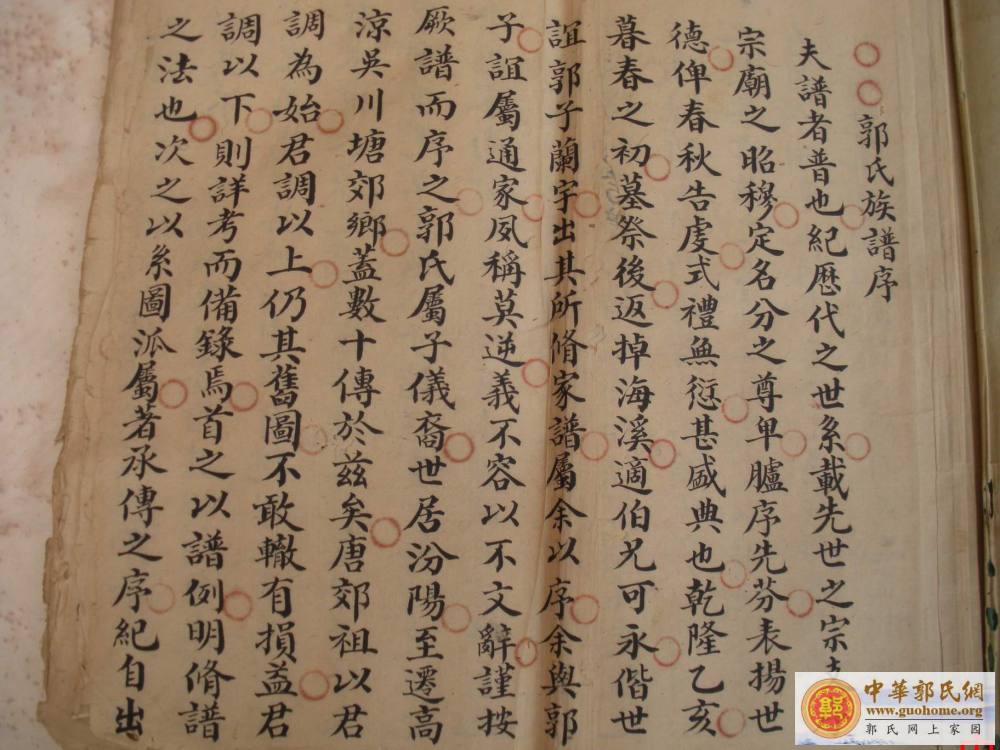 郭氏族譜序
夫譜者普也紀歷代之世系載先世之宗
宗廟之昭穆定名分之尊卑臚序先芬表揚世
德俾春秋告虔式禮無愆甚盛典也乾隆乙亥
暮春之初墓祭後返掉海溪適伯兄可永偕世
誼郭子蘭宇出其所脩家譜屬余以序余與郭
子誼屬通家夙稱莫逆義不容以不文辭謹按
厥譜而序之郭氏屬子儀裔世居汾陽至遷高
涼吳川塘郊鄉蓋數十傳於茲矣唐郊祖以君
調為始君調以上仍其舊圖不敢轍有損益君
調以下則詳考而備錄焉首之以譜例明脩譜
之法也次之以系圖派屬著承傳之序紀自出
中華郭氏網
www.guohome.org
郭氏网上家园